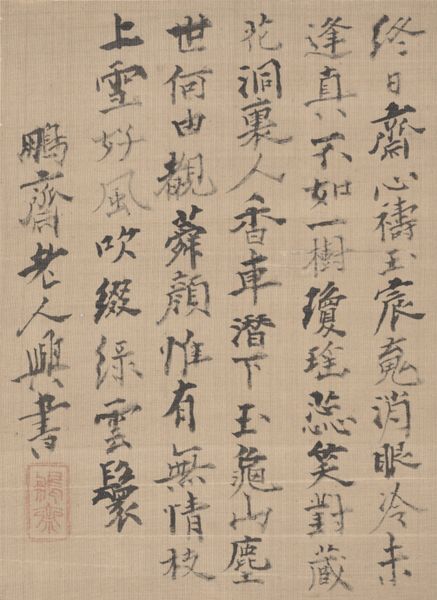 終日齋心禱玉宸魂消眼冷未
逢真不如一樹瓊瑤蕊笑對藏
花洞裏人香車潛下玉龜山塵
世何由覩蕣顏惟有無情枝
上雪好風吹綴綠雲鬟
鵬齋老人興書
鵬齋